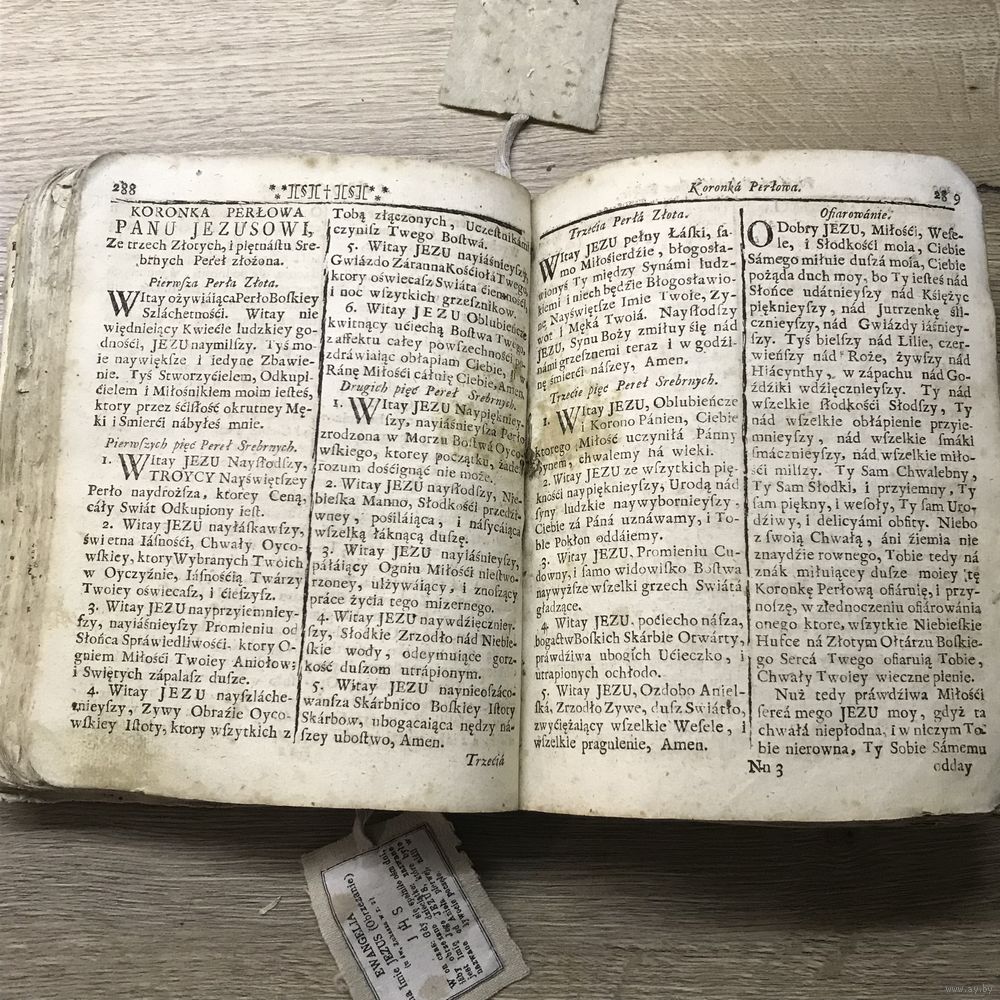 288
KORONKA PERŁOWA
PANU JEZUSOWI,
Ze trzech Złotych, i piętnástu Sre-
brnych Pereł złożona.
Pierwsza Perła Złota.
WItay ożywiáiąca Perło Boskiey
Száchetnośći. Witay nie
więdnieiący Kwiećie ludzkiey go-
dnośći, JEZU naymilszy. Tyś mo-
ie naywiększe i iedyne Zbawie-
nie. Tyś Stworzyćielem, Odkupi-
ćielem i Miłośnikiem moim iesteś,
ktory przez śćisłość okrutney Mę-
ki i Smierći nábyłeś mnie.
Pierwszych pięć Pereł Srebrnych.
1. WItay JEZU Naysłodszy,
TROYCY Nayświętszey
Perło naydroższa, ktorey Ceną,
cáły Swiát Odkupiony iest.
2. Witay JEZU nayłáskawszy,
świetna Iásnośći, Chwały Oyco-
wskiey, ktory Wybranych Twoich
w Oyczyźnie, Iásnośćią Twárzy
Twoiey oświecasz, i ćieszysz.
3. Witay JEZU nayprzyiemniey-
szy, nayiáśnieyszy Promieniu od
Słońca Spráwiedliwośći, ktory O-
gniem Miłośći Twoiey Aniołow,
i Swiętych zápalasz dusze.
4. Witay JEZU nayszláche-
tnieyszy, Zywy Obraźie Oyco-
wskiey Istoty, ktory wszytkich z
Tobą złączonych, Uczestnikámi
czynisz Twego Bostwá.
5. Witay JEZU nayiáśnieyszy,
Gwiázdo Záranna Kośćiołá Twego,
ktory oświecasz Swiáta ćiemnośći,
i noc wszytkich grzesznikow.
6. Witay JEZU Oblubieńcze
kwitnący ućiechą Bostwa Twego,
z affektu całey powszechnośći,
zdráwiaiąc obłapiam Ciebie, i w
Ránę Miłośći cáłuię Ciebie, Amen.
Drugich pięć Pereł Srebrnych.
1. WItay JEZU Naypiękniey-
szy, nayiáśnieysza Perło
zrodzona w Morzu Bostwá Oyco-
wskiego, ktorey początku, żaden
rozum dośćignąć nie może.
2. Witay JEZU naysłodszy, Nie-
bieska Manno, Słodkośći przedźi-
wney, pośiláiąca, i násycáiąca
wszelką łáknącą duszę.
3. Witay JEZU nayiáśnieyszy,
páłáiący Ogniu Miłośći niestwo-
rzoney, ulżywáiący, i znoszący
práce żyćia tego mizernego.
4. Witay JEZU naywdźięczniey-
szy, Słodkie Zrzodło nád Niebie-
skie wody, odeymuiące gorz-
kość duszom utrápionym.
5. Witay JEZU naynieoszáco-
wánsza Skárbnico Boskiey Istoty
Skárbow, ubogacaiąca nędzy ná-
szey ubostwo, Amen.
Trzecia
Koronká Perłowa.
289
Trzecia Perłá Złota.
WItay JEZU pełny Łáski, sá-
mo Miłośierdźie, błogosła-
wionyś Ty między Synámi ludz-
kiemi i niech będźie Błogosławio-
ne, Nayświętsze Imie Twoie, Zy-
wot i Męká Twoiá. Naysłodszy
JEZU, Synu Boży zmiłuy się nád
námi grzesznemi teraz i w godźi-
nę śmierći nászey, Amen.
Trzećie pięć Pereł Srebrnych.
1. WItay JEZU, Oblubieńcze
i Korono Pánien, Ciebie
ktorego Miłość uczyniłá Pánny
Synem, chwalemy ná wieki.
2. Witay JEZU ze wszytkich pię-
knośći naypięknieyszy, Urodą nád
syny ludzkie naywybornieyszy,
Ciebie zá Páná uznáwamy, i To-
bie Pokłon oddáiemy.
3. Witay JEZU, Promieniu Cu-
downy, i samo widowisko Bostwa
naywyższe wszelki grzech Swiátá
głádzące.
4. Witay JEZU, poćiecho násza,
bogactw Boskich Skárbie Otwárty,
práwdźiwa ubogich Ućieczko, i
utrapionych ochłodo.
5. Witay JEZU, Ozdobo Aniel-
ská, Zrzodło Zywe, dusz Swiátło,
zwyćiężáiący wszelkie Wesele, i
wszelkie prágnienie, Amen.
Ofiarowánie.
O Dobry JEZU, Miłośći, Wese-
le, i Słodkośći moia, Ciebie
Sámego miłuie duszá moiá, Ciebie
pożąda duch moy, bo Ty iesteś nád
Słońce udátnieyszy nád Kśiężyc
pięknieyszy, nád Jutrzenkę śli-
cznieyszy, nád Gwiázdy iáśniey-
szy. Tyś bielszy nád Lilie, czer-
wieńszy nád Roże, żywszy nád
Hiácynthy, w zápachu nád Go-
źdźiki wdźięcznieyszy. Ty nád
wszelkie słodkośći Słodszy, Ty
nád wszelkie obłápienie przyie-
mnieyszy, nád wszelkie smáki
smácznieyszy, nád wszelkie miło-
śći milszy. Ty Sam Chwalebny,
Ty Sam Słodki, i przyiemny, Ty
sam piękny, i wesoły, Ty sam Uro-
dźiwy, i delicyámi obfity. Niebo
z swoią Chwałą, áni źiemia nie
znaydźie rownego, Tobie tedy ná
znák miłuiącey dusze moiey tę
Koronkę Perłową ofiáruię, i przy-
noszę, w ziednoczeniu ofiárowánia
onego ktore, wszytkie Niebieskie
Hufce ná Złotym Ołtárzu Boskie-
go Sercá Twego ofiaruią Tobie,
Chwały Twoiey wieczne pienie.
Nuż tedy práwdźiwa Miłośći
sercá mego JEZU moy, gdyż tá
chwałá niepłodna, i w niczym To-
bie nierowna, Ty Sobie Sámemu
Nn 3
odday
EWANGELIA
na Imię JEZUS (Obrzezanie)
www.ay.by